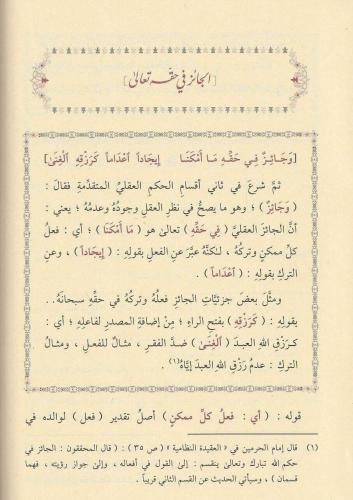 [الجائز في حقّه تعالىٰ]
[وَجَائِزٌ فِي حَقِّهِ مَا أَمْكَنَا إِيجَاداً اعْدَاماً كَرَزْقِهِ ٱلْغِنَىٰ]
ثمَّ شرعَ في ثاني أقسامِ الحكمِ العقليِّ المتقدِّمةِ فقالَ :
( وَجَائِزٌ ) ؛ وهو ما يصحُّ في نظرِ العقلِ وجودُهُ وعدمُهُ ؛ يعني :
أنَّ الجائزَ العقليَّ ( فِي حَقِّهِ ) تعالىٰ هو ( مَا أَمْكَنَا ) ؛ أي : فعلُ
كلِّ ممكنٍ وتركُهُ ، لـٰكنَّهُ عبَّرَ عن الفعلِ بقولِهِ : ( إِيجَاداً ) ، وعن
التركِ بقولِهِ : ( اعْدَاماً ) .
ومثَّلَ بعضَ جزئيَّاتِ الجائزِ فعلُهُ وتركُهُ في حقِّهِ سبحانَهُ..
بقولِهِ : ( كَرَزْقِهِ ) بفتحِ الراءِ ؛ مِنْ إضافةِ المصدرِ لفاعلِهِ ؛ أي :
كرَزْقِ اللهِ العبدَ ( ٱلْغِنَىٰ ) ضدَّ الفقرِ ، مثالٌ للفعلِ ، ومثالُ
التركِ : عدمُ رَزْقِ اللهِ العبدَ إيَّاهُ(١) .
قوله : ( أي : فعلُ كلِّ ممكنٍ ) أصلُ تقدير ( فعل ) لوالده في
(١) قال إمام الحرمين في « العقيدة النظامية » ( ص ٣٥ ) : ( قال المحققون : الجائز في
حكم الله تبارك وتعالىٰ ينقسم : إلى القول في أفعاله ، وإلىٰ جواز رؤيته ، فهما
قسمان ) ، وسيأتي الحديث عن القسم الثاني قريباً .